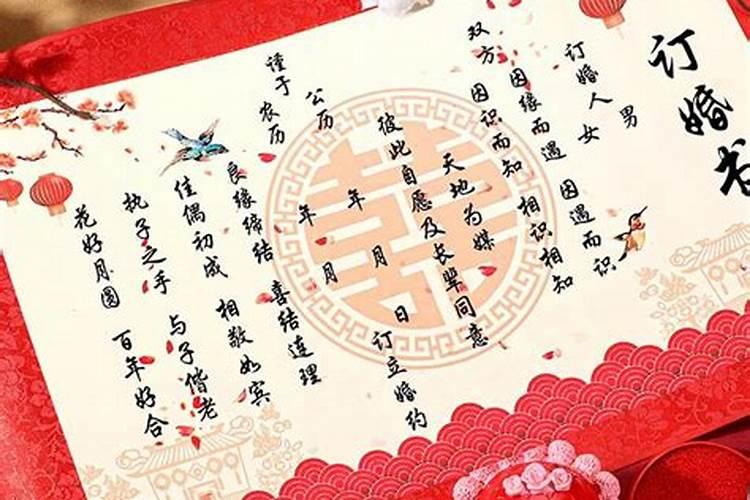 订婚书
男
订婚人 女
双方
因缘而遇 因遇而识
因识而知 相识相知
天地为媒
彼此自愿及长辈同意
谨于
公历 年 月 日 订立婚约
农历 年 月
良缘缔结 喜结连理
佳偶初成 相敬如宾
执子之手 与子偕老
花好月圆 百年好合
囍